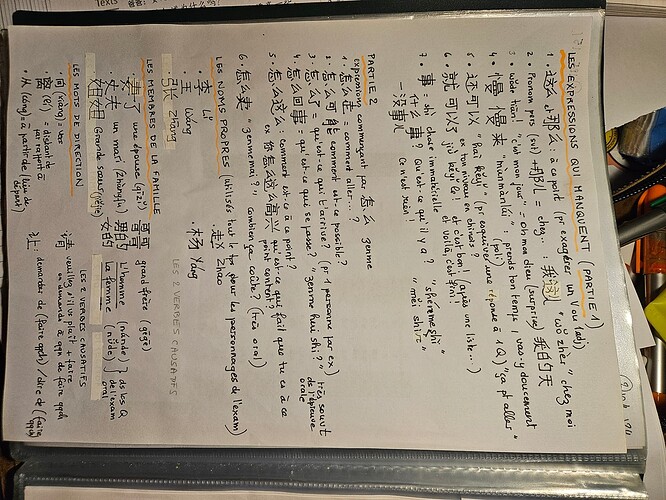 LES EXPRESSIONS QUI MANQUENT (PARTIE 1)
1. 这么 et 那么 : à ce point (pr exagérer un V ou 1 adj)
2. Pronom pers (suj) + 那儿 = chez... : 我这儿 "wǒ zhèr" chez moi
3. wǒde tiān! "c'est mon jour" = oh mon dieu (surprise) 我的天
4. 慢慢来 "mànmànlái" prends ton temps / vas-y doucement (poli)
5. 还可以 "hái kěyǐ" (pr esquiver une réponse à 1 Q) "ça pt aller"
ex ton niveau en chinois?
6. 就可以了 jiù kěyǐ le! et c'est bon! (après une liste...)
et voilà, c'est fini!
7. 事 shì chose immatérielle
什么事? Qu'est ce qu'il y a? "shénmeshì"
- 没事儿 Ce n'est rien! "méi shìr"
PARTIE 2
expressions commençant par 怎么 zenme
1. 怎么走 = comment aller...?
2. 怎么可能 comment est-ce possible?
3. 怎么了 = qu'est-ce qui t'arrive? (pr 1 personne par ex)
4. 怎么回事 = qu'est-ce qui se passe? "zenme hui shi?" très souvt de l'épreuve orale
5. 怎么这么 : comment est-ce à ce point?
ex 你怎么这么高兴 qu'est-ce qui fait que tu es à ce point content?
6. 怎么卖 "zenmemai?" combien ça coûte? (très oral)
LES NOMS PROPRES (utilisés tout le tps pour les personnages de l'exam)
· 李 Lǐ
· 王 Wáng
· 张 Zhāng
· 赵 Zhao
· 杨 Yáng
LES 2 VERBES CAUSATIFS
LES MEMBRES DE LA FAMILLE
· 妻子 une épouse (qīzi)
· 丈夫 un mari (zhàngfu)
· 姐姐 Grande soeur (jiějie)
哥哥 grand frère (gēge)
男的 L'homme (nánde)
女的 La femme (nǚde)
} ds les Q de l'exam oral
LES MOTS DE DIRECTION
· 向 (xiàng) = vers
· 离 (lí) = distant de par rapport à
· 从 (cóng) = à partir de (lieu de départ)
LES 2 VERBES CAUSATIFS
请 veuillez, s'il vs plaît + faire
demander à qqn de faire qqch
让 demander de (faire qqch) / dire de (faire qqch)